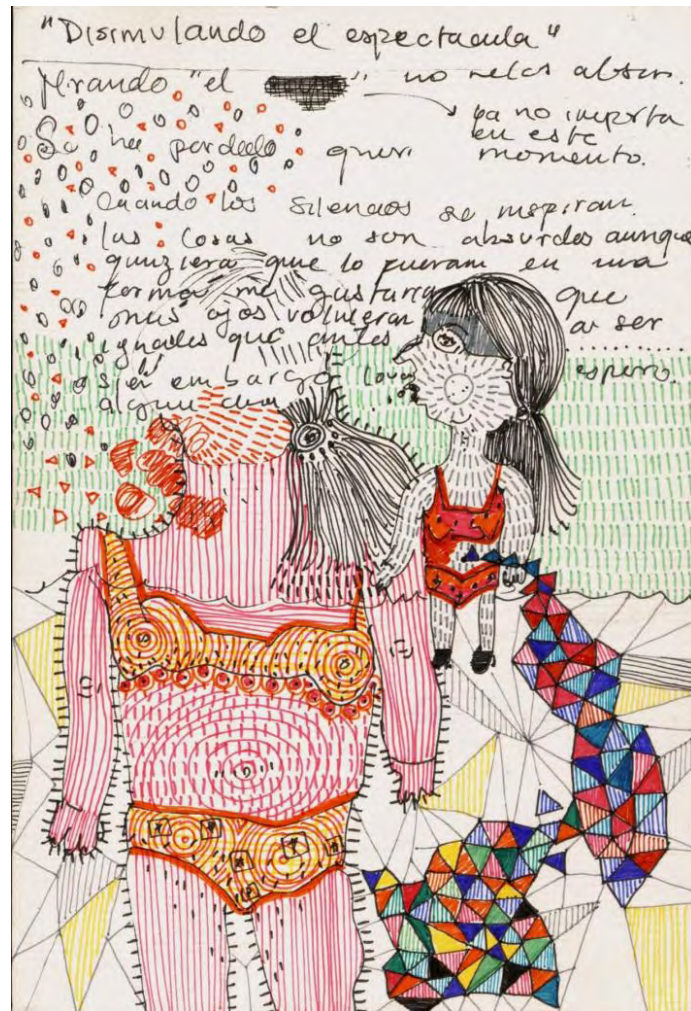 "Disimulando el espectacula"
Mirando "el " no
ya no importa
en este
momento.
Se ha perdido
Cuando los silencios se inspiran
las cosas no son absurdas aunque
quiziera que lo fueran en una
forma me gustaria que
mis ojos volvieran a ser
iguales que antes
sin embargo espero.
algun dia